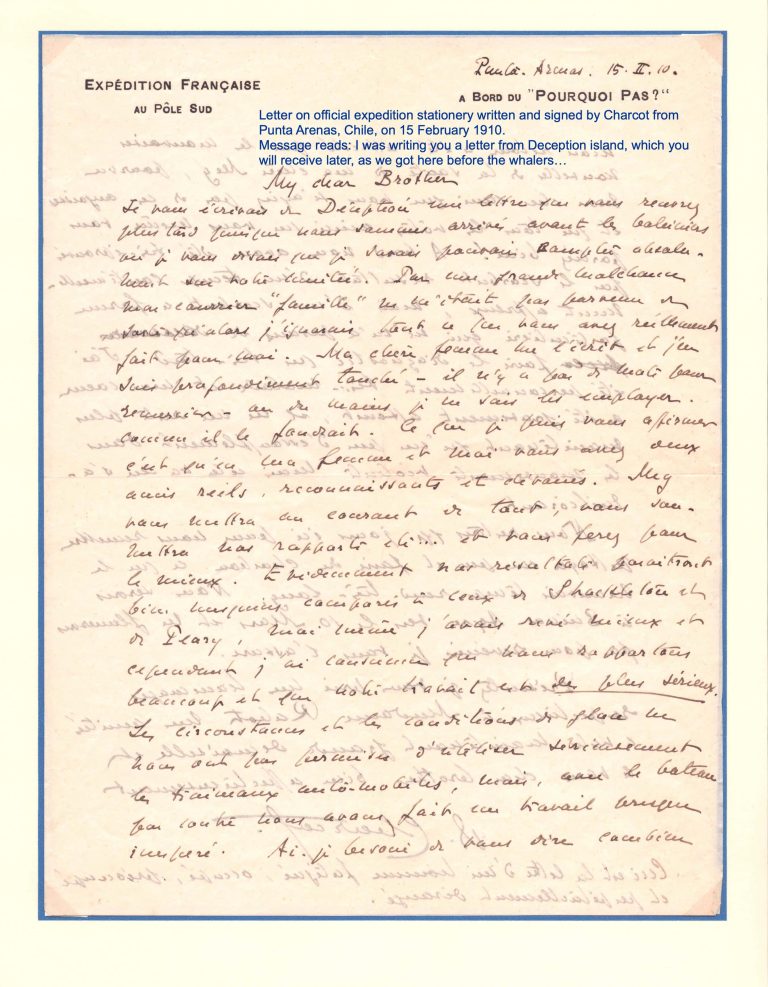 Punta-Arenas. 15. II. 10.
EXPÉDITION FRANÇAISE
AU PÔLE SUD
A BORD DU "POURQUOI PAS?"
Letter on official expedition stationery written and signed by Charcot from
Punta Arenas, Chile, on 15 February 1910.
Message reads: I was writing you a letter from Deception island, which you
will receive later, as we got here before the whalers…
My dear Brother
Je vous écrivais de Déception une lettre que vous recevrez
plus tard puisque nous sommes arrivés avant les baleiniers
où je vous disais que je savais pouvoir compter absolu-
ment sur votre amitié. Par une grande malchance
mon courrier "famille" ne m'était pas parvenu et
jusqu'alors j'ignorais tout ce que vous avez réellement
fait pour moi. Ma chère femme me l'écrit et j'en
suis profondément touché – il n'y a pas de mots pour
remercier – ou du moins je ne sais les employer
comme il le faudrait. Ce que je puis vous affirmer
c'est qu'en ma femme et moi vous avez deux
amis réels, reconnaissants et dévoués. Meg
vous mettra au courant de tout, vous sou-
mettra nos rapports etc... et vous ferez pour
le mieux. Evidemment nos résultats paraitront
bien mesquins comparés à ceux de Shackleton et
de Peary, moi même j'avais rêvé mieux et
cependant j'ai conscience que nous rapportons
beaucoup et que notre travail est des plus sérieux.
Les circonstances et les conditions de glace ne
nous ont pas permis d'utiliser sérieusement
les traineaux auto-mobiles, mais, avec le bateau
par contre nous avons fait un travail presque
inespéré. Ai-je besoin de vous dire combien